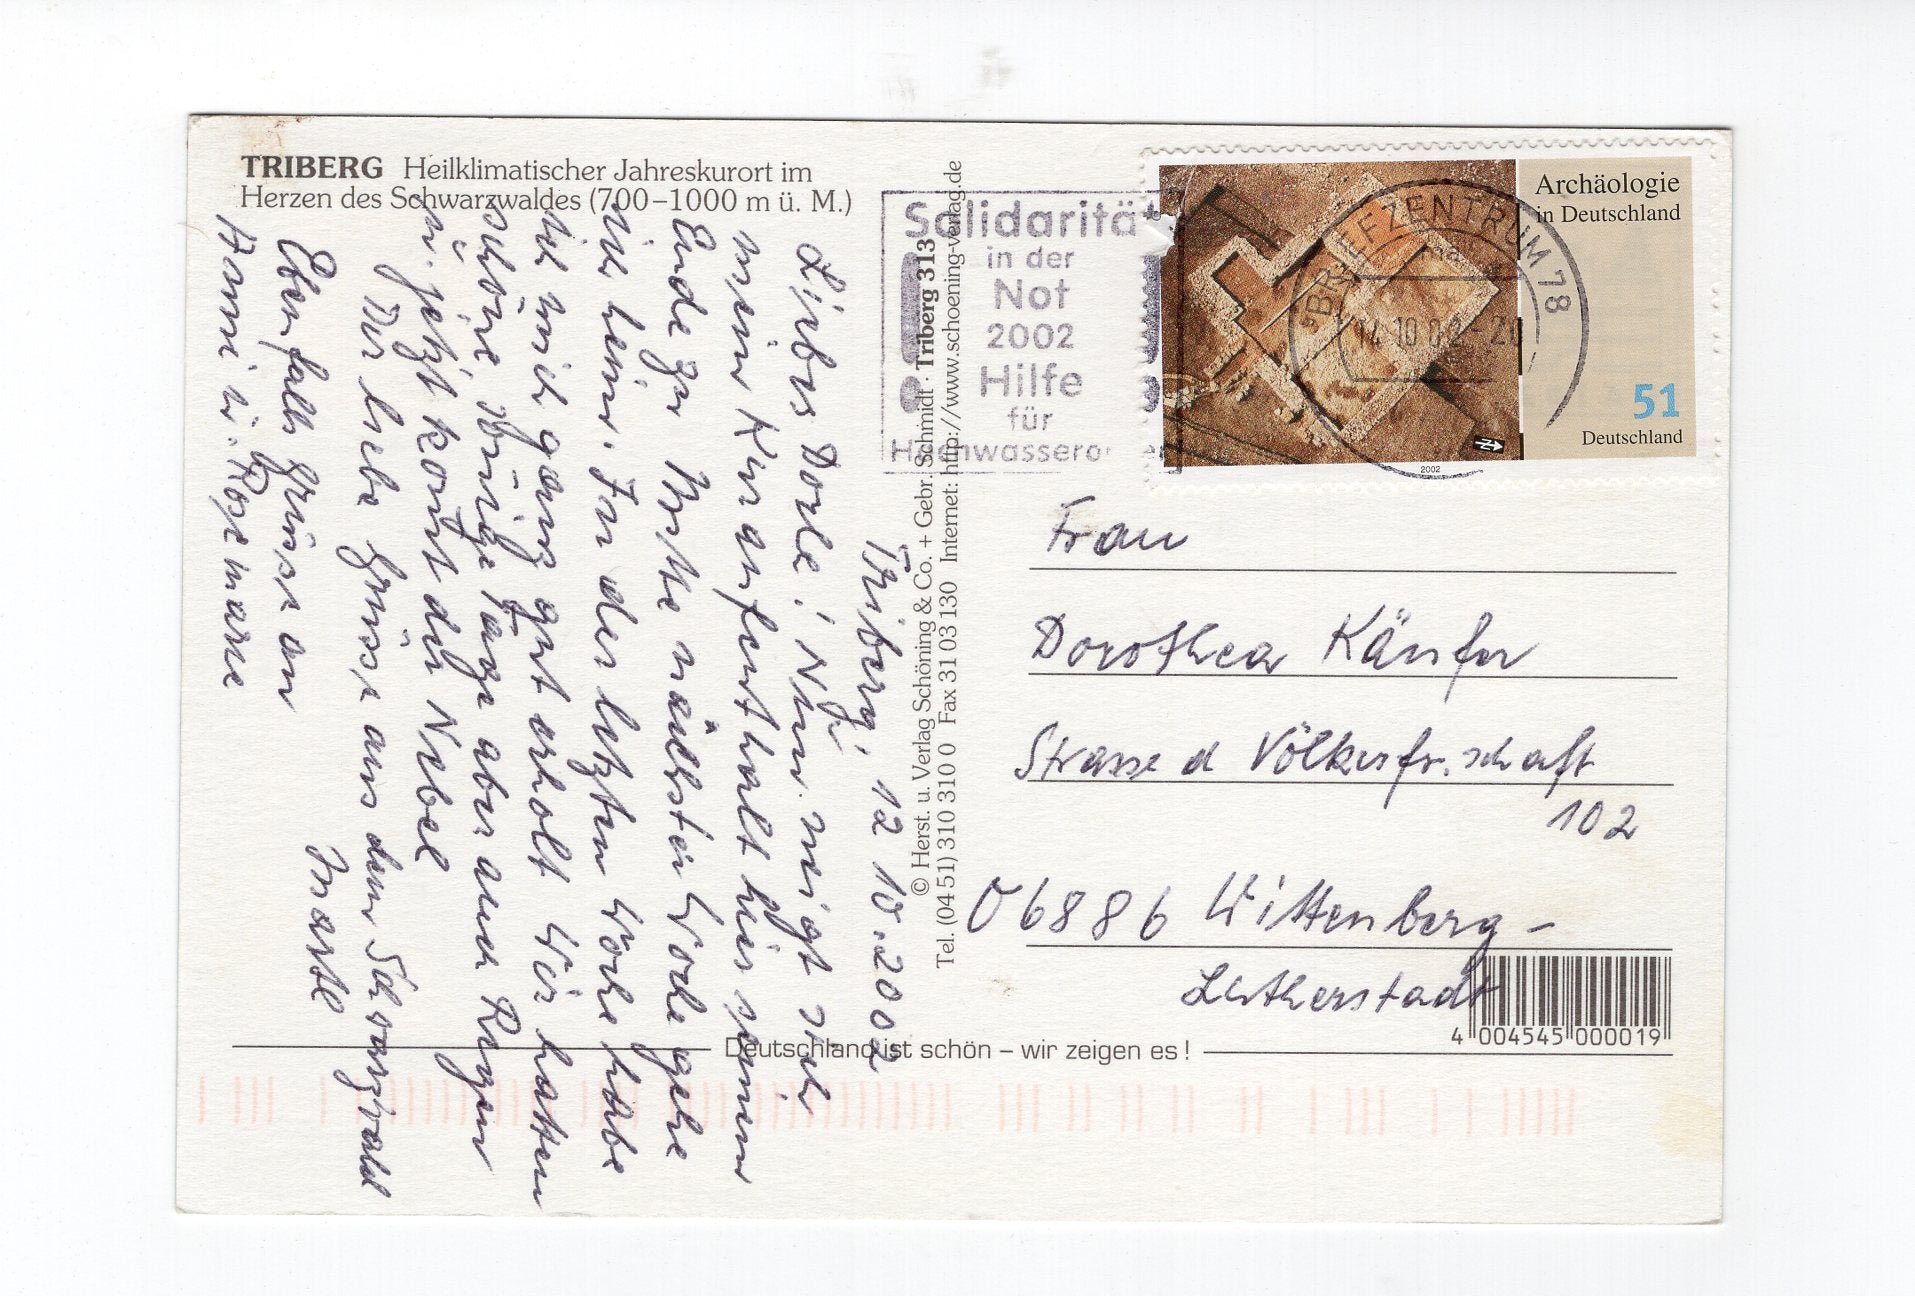 TRIBERG Heilklimatischer Jahreskurort im
Herzen des Schwarzwaldes (700–1000 m ü. M.)
Triberg, 12 10. 2002
Liebe Dorle! Nun neigt sich
mein Kuraufenthalt hier seinem
Ende zu Mitte nächsten Woche gehe
ich heim. In der letzten Woche habe
ich mich ganz gut erholt Wir hatten
schöne Tage aber auch Regen
u. jetzt komt der Nebel
Der liebe Grüsse aus dem Schwarzwald
Ebenfalls Grüsse an
Hanni u. Rosemarie
© Herst. u. Verlag Schöning & Co. + Gebr. Schmidt · Triberg 313
Tel. (04 51) 310 310 0 Fax 31 03 130 Internet: http://www.schoening-verlag.de
Solidarität
in der
Not
2002
Hilfe
für
BRIEFZENTRUM 78
14.10.02-20
Archäologie
in Deutschland
51
Deutschland
2002
Frau
Dorothea Känfer
Strasse d Völkerfr.schaft
102
06886 Wittenberg-
Lutherstadt
4 004545 000019
Deutschland ist schön – wir zeigen es!